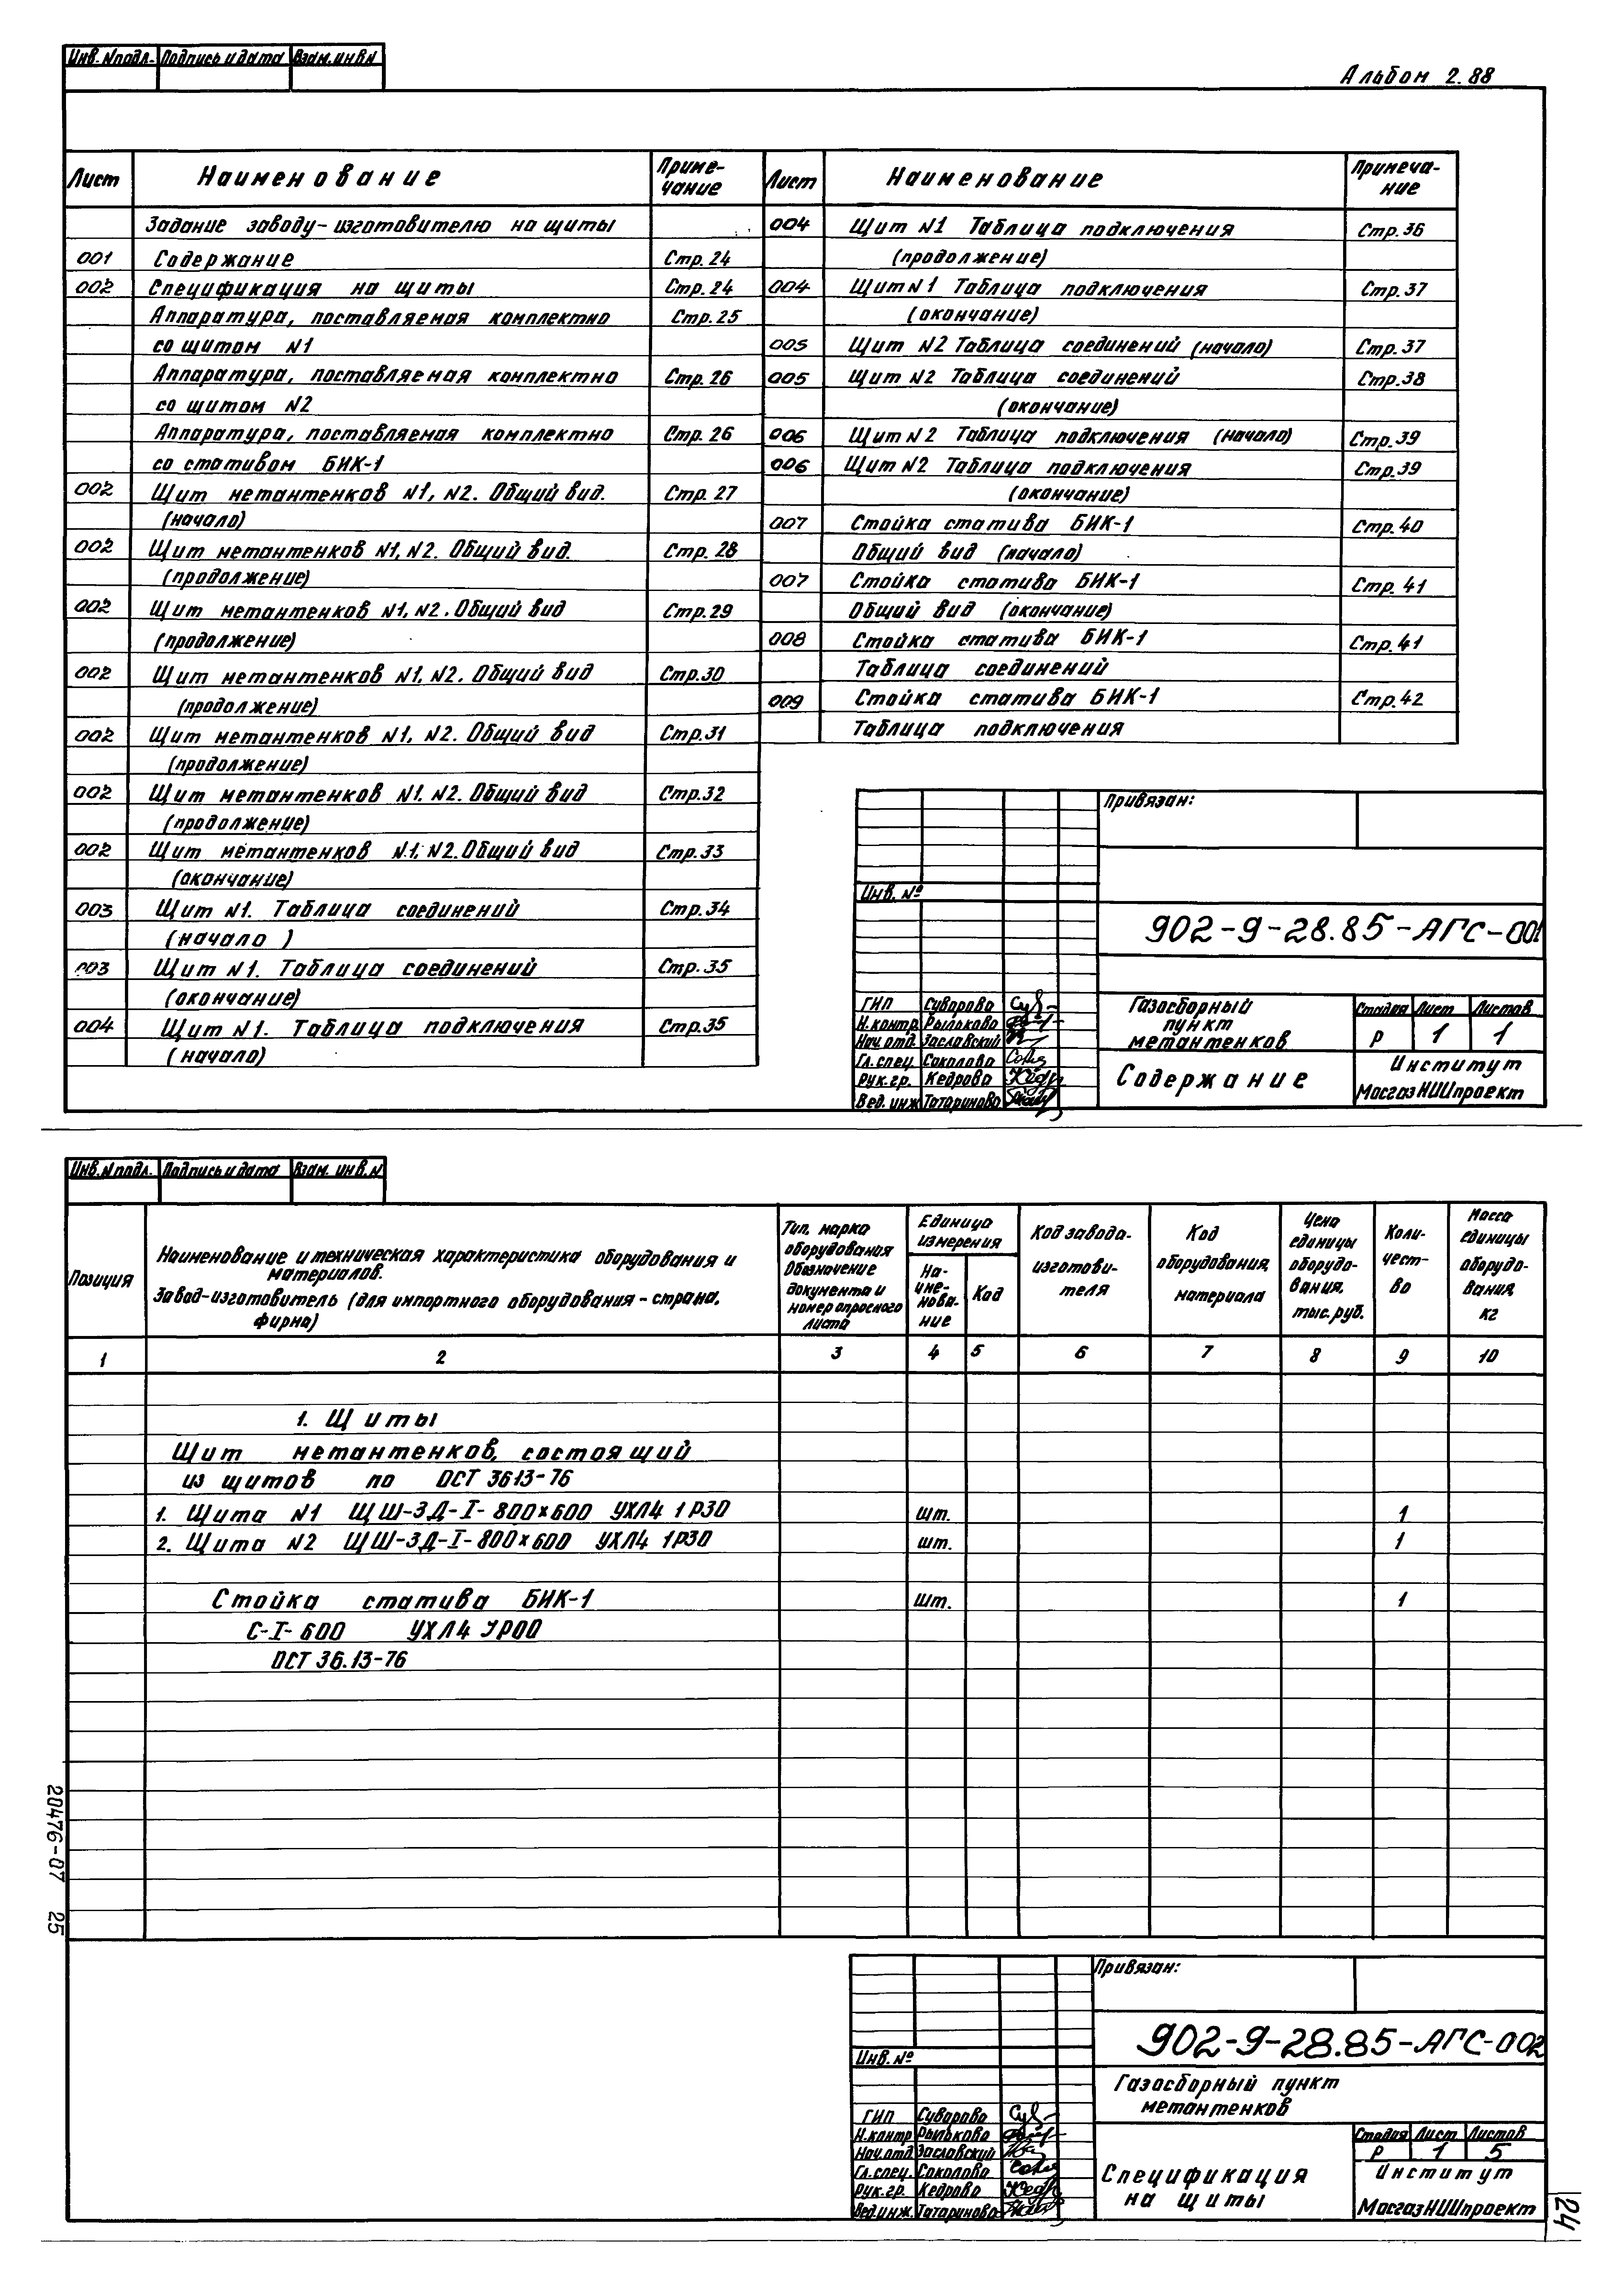 Инв. N подл. Подпись и дата Взам. инв. N
Альбом 2.88
Лист Наименование Приме-
чание
Задание заводу-изготовителю на щиты
001 Содержание Стр. 24
002 Спецификация на щиты Стр. 24
Аппаратура, поставляемая комплектно Стр. 25
со щитом N1
Аппаратура, поставляемая комплектно Стр. 26
со щитом N2
Аппаратура, поставляемая комплектно Стр. 26
со стативом БИК-1
002 Щит метантенков N1, N2. Общий вид. Стр. 27
(начало)
002 Щит метантенков N1, N2. Общий вид. Стр. 28
(продолжение)
002 Щит метантенков N1, N2. Общий вид Стр. 29
(продолжение)
002 Щит метантенков N1, N2. Общий вид Стр. 30
(продолжение)
002 Щит метантенков N1, N2. Общий вид Стр. 31
(продолжение)
002 Щит метантенков N1. N2. Общий вид Стр. 32
(продолжение)
002 Щит метантенков N1, N2. Общий вид Стр. 33
(окончание)
003 Щит N1. Таблица соединений Стр. 34
(начало)
003 Щит N1. Таблица соединений Стр. 35
(окончание)
004 Щит N1. Таблица подключения Стр. 35
(начало)
Лист Наименование Примеча-
ние
004 Щит N1 Таблица подключения Стр. 36
(продолжение)
004 Щит N1 Таблица подключения Стр. 37
(окончание)
005 Щит N2 Таблица соединений (начало) Стр. 37
005 Щит N2 Таблица соединений Стр. 38
(окончание)
006 Щит N2 Таблица подключения (начало) Стр. 39
006 Щит N2 Таблица подключения Стр. 39
(окончание)
007 Стойка статива БИК-1 Стр. 40
Общий вид (начало)
007 Стойка статива БИК-1 Стр. 41
Общий вид (окончание)
008 Стойка статива БИК-1 Стр. 41
Таблица соединений
009 Стойка статива БИК-1 Стр. 42
Таблица подключения
Привязан:
Инв. №
902-9-28.85-АГС-001
ГИП Суворова
Н.контр. Рыльково
Нач.отд. Заславский
Гл. спец. Соколова
Рук. гр. Кедрова
Вед. инж. Татаринова
Газосборный
пункт
метантенков
Стадия Лист Листов
Р 1 1
Содержание
Институт
МосгазНИИпроект
Инв. N подл. Подпись и дата Взам. инв. N
Позиция
Наименование и техническая характеристика оборудования и
материалов.
Завод-изготовитель (для импортного оборудования - страна,
фирма)
Тип, марка
оборудования
Обозначение
документа и
номер опросного
листа
Единица
измерения
На-
име-
нова-
ние
Код
Код завода-
изготови-
теля
Код
оборудования,
материала
Цена
единицы
оборудо-
вания,
тыс. руб.
Коли-
чест-
во
Масса
единицы
оборудо-
вания,
кг
1 2 3 4 5 6 7 8 9 10
1. Щиты
Щит метантенков, состоящий
из щитов по ОСТ 3613-76
1. Щита N1 ЩШ-ЗД-I-800×600 УХЛ4 1Р30 шт. 1
2. Щита N2 ЩШ-ЗД-I-800×600 УХЛ4 1Р30 шт. 1
Стойка статива БИК-1 шт. 1
С-I-600 УХЛ4 УР00
ОСТ 36.13-76
20476-07 25
Привязан:
Инв. №
902-9-28.85-АГС-002
Газосборный пункт
метантенков
ГИП Суворова
Н.контр Рылькова
Нач.отд Заславский
Гл. спец. Соколова
Рук. гр. Кедрова
Вед. инж. Татаринова
Стадия Лист Листов
Р 1 5
Спецификация
на щиты
Институт
МосгазНИИпроект
24